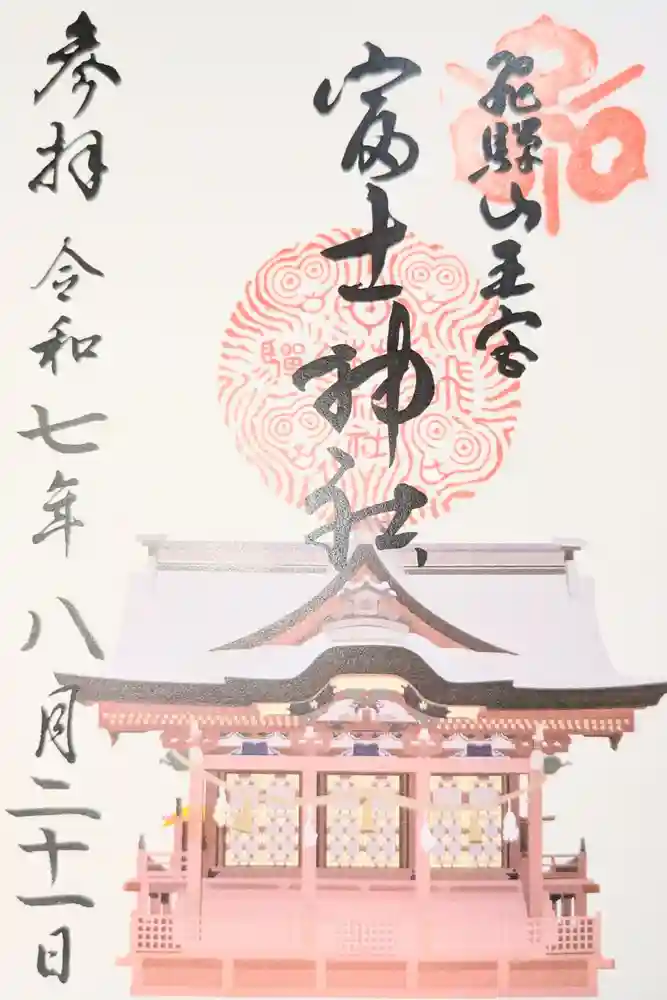 飛騨山王宮
富士神社
参拝 令和七年八月二十一日